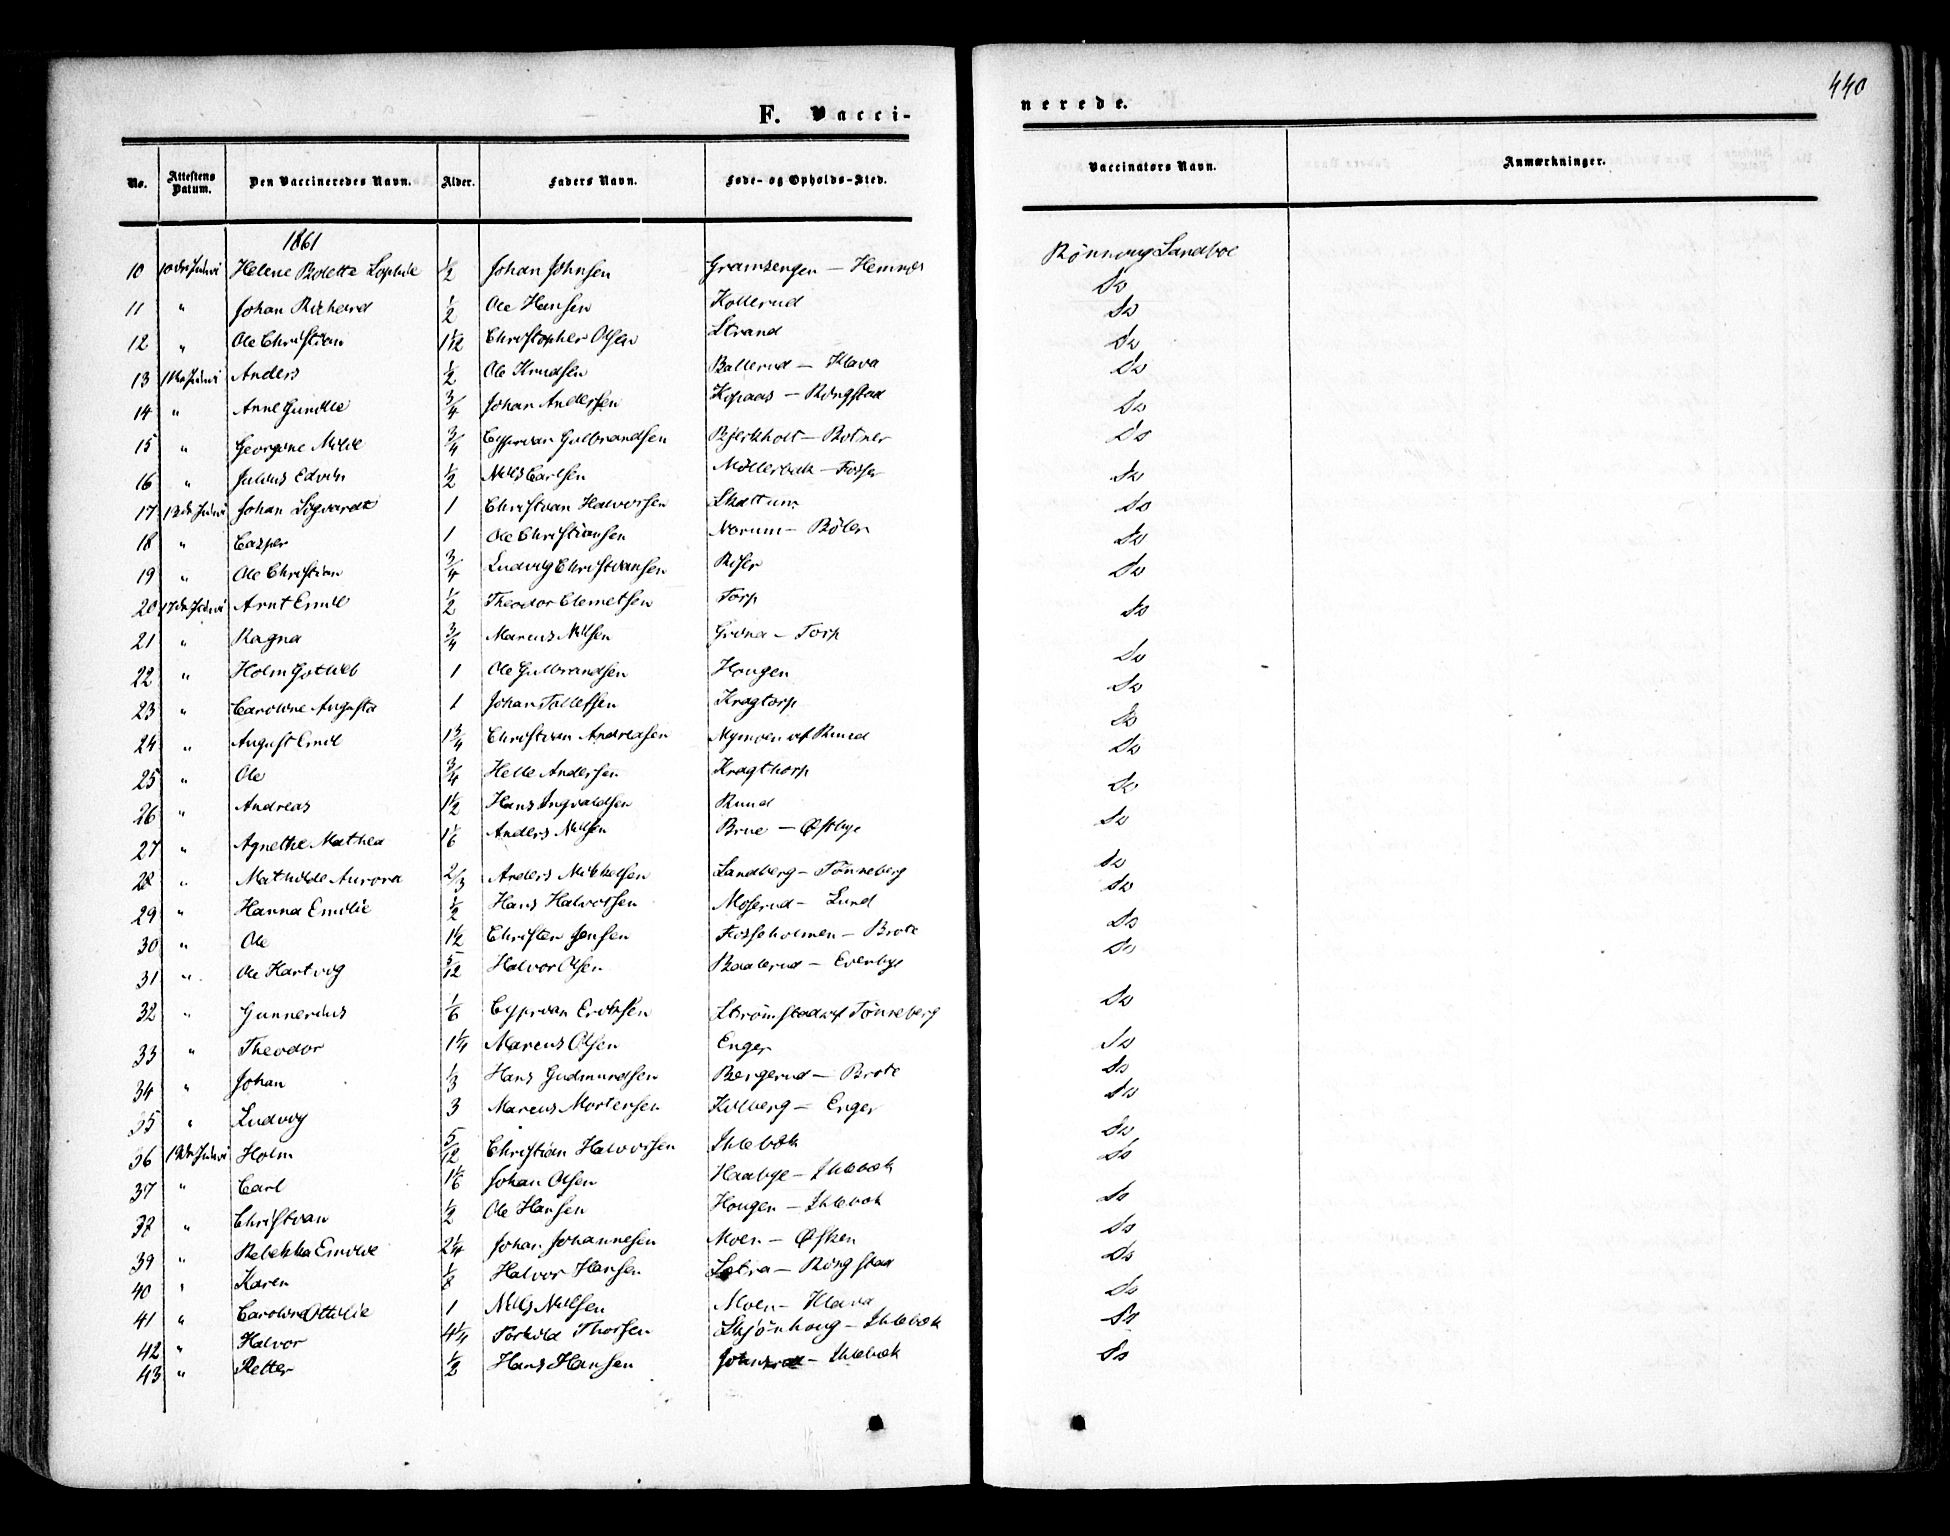 440
F. Vacci- nerede.
No. Attestens Datum. Den Vaccineredes Navn. Alder. Faders Navn. Føde- og Opholds-Sted. Vaccinators Navn. Anmærkninger.
1861
10 10de Juni Helene Bolette Sophie 1/2 Johan Johnsen Gramsengen — Hemnæs Rönnaug Sandboe
11 " Johan Richard 1/2 Ole Hansen Kollerud Do
12 " Ole Christian 1 1/2 Christopher Olsen Strand Do
13 11te Juni Anders 1/2 Ole Knudsen Ballerud — Klava Do
14 " Anne Gunilde 3/4 Johan Andersen Kopaas — Ringstad Do
15 " Georgine Milie 3/4 Cyprian Gulbrandsen Bjerkholt — Botner Do
16 " Julius Edvin 1/2 Nils Carlsen Möllerbak — Fosser Do
17 12de Juni Johan Sigvardt 1 Christian Halvorsen Skattum Do
18 " Casper 1 Ole Christiansen Narum — Böler Do
19 " Ole Christian 3/4 Ludvig Christiansen Riser Do
20 17de Juni Arnt Emil 1/2 Theodor Clemetsen Torp Do
21 " Ragna 3/4 Marcus Nilsen Grina — Torp Do
22 " Holm Gotlieb 1 Ole Gulbrandsen Hougen Do
23 " Caroline Augusta 1 Johan Tollefsen Kragtorp Do
24 " August Emil 1 3/4 Christian Andreasen Nymoen af Ruud Do
25 " Ole 3/4 Helle Andersen Kragthorp Do
26 " Andreas 1 1/2 Hans Ingvaldsen Ruud Do
27 " Agnethe Mathea 1 1/6 Anders Nilsen Brue — Østbye Do
28 " Mathilde Aurora 2/3 Anders Mikkelsen Sandberg — Tönneberg Do
29 " Hanna Emilie 1/2 Hans Halvorsen Moserud — Lund Do
30 " Ole 1 1/2 Christen Jensen Fossholmen — Brote Do
31 " Ole Hartvig 5/12 Halvor Olsen Baalerud — Evenbye Do
32 " Gunnerius 1/6 Cyprian Eriksen Strömstad af Tönneberg Do
33 " Theodor 1 1/4 Marcus Olsen Enger Do
34 " Johan 1/3 Hans Gudmundsen Bergerud — Brote Do
35 " Ludvig 3 Marcus Mortensen Kilberg — Enger Do
36 19de Juni Holm 5/12 Christian Halvorsen Ihlebæk Do
37 " Carl 1 1/6 Johan Olsen Haabye — Ihlebæk Do
38 " Christian 1/2 Ole Hansen Hougen — Ihlebæk Do
39 " Rebekka Emilie 2 1/4 Johan Johannesen Moen — Østken Do
40 " Karen 1/2 Halvor Hansen — Ringstad Do
41 " Caroline Ottilie 1 Nils Nilsen Moen — Klava Do
42 " Halvor 4 1/4 Torkild Thorsen Skjönhaug — Ihlebæk Do
43 " Petter 1/2 Hans Hansen — Ihlebæk Do